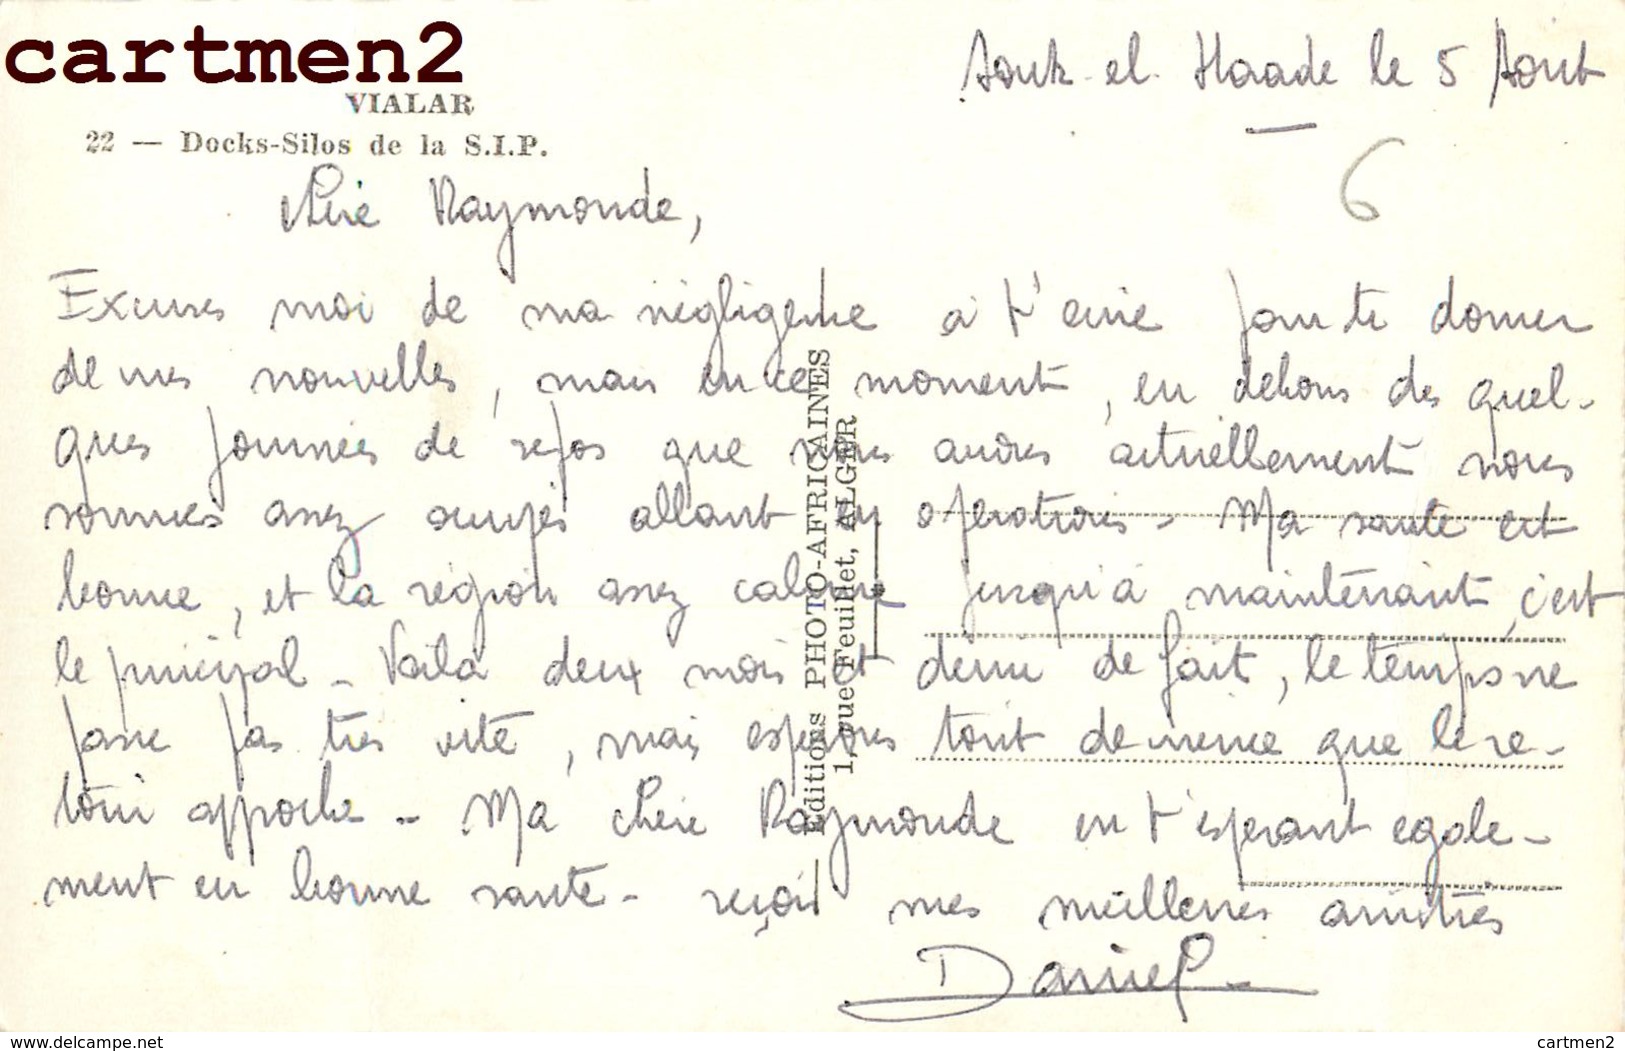 cartmen2
VIALAR
22 — Docks-Silos de la S.I.P.
Souk-el-Haade le 5 Aout
6
Chère Raymonde,
Excuses moi de ma négligence à t'écrire pour te donner
de mes nouvelles, mais en ce moment, en dehors des quel-
ques journées de repos que nous avons actuellement nous
sommes assez occupés allant en opérations - Ma santé est
bonne, et la région assez calme jusqu'à maintenant, c'est
le principal - Voila deux mois et demi de fait, le temps ne
passe pas très vite, mais espérons tout de meme que le re-
tour approche - Ma chère Raymonde en t'espérant égale-
ment en bonne santé - reçois mes meilleures amitiés
Daniel
Editions PHOTO-AFRICAINES
1, rue Feuillet, ALGER
delcampe.net
cartmen2